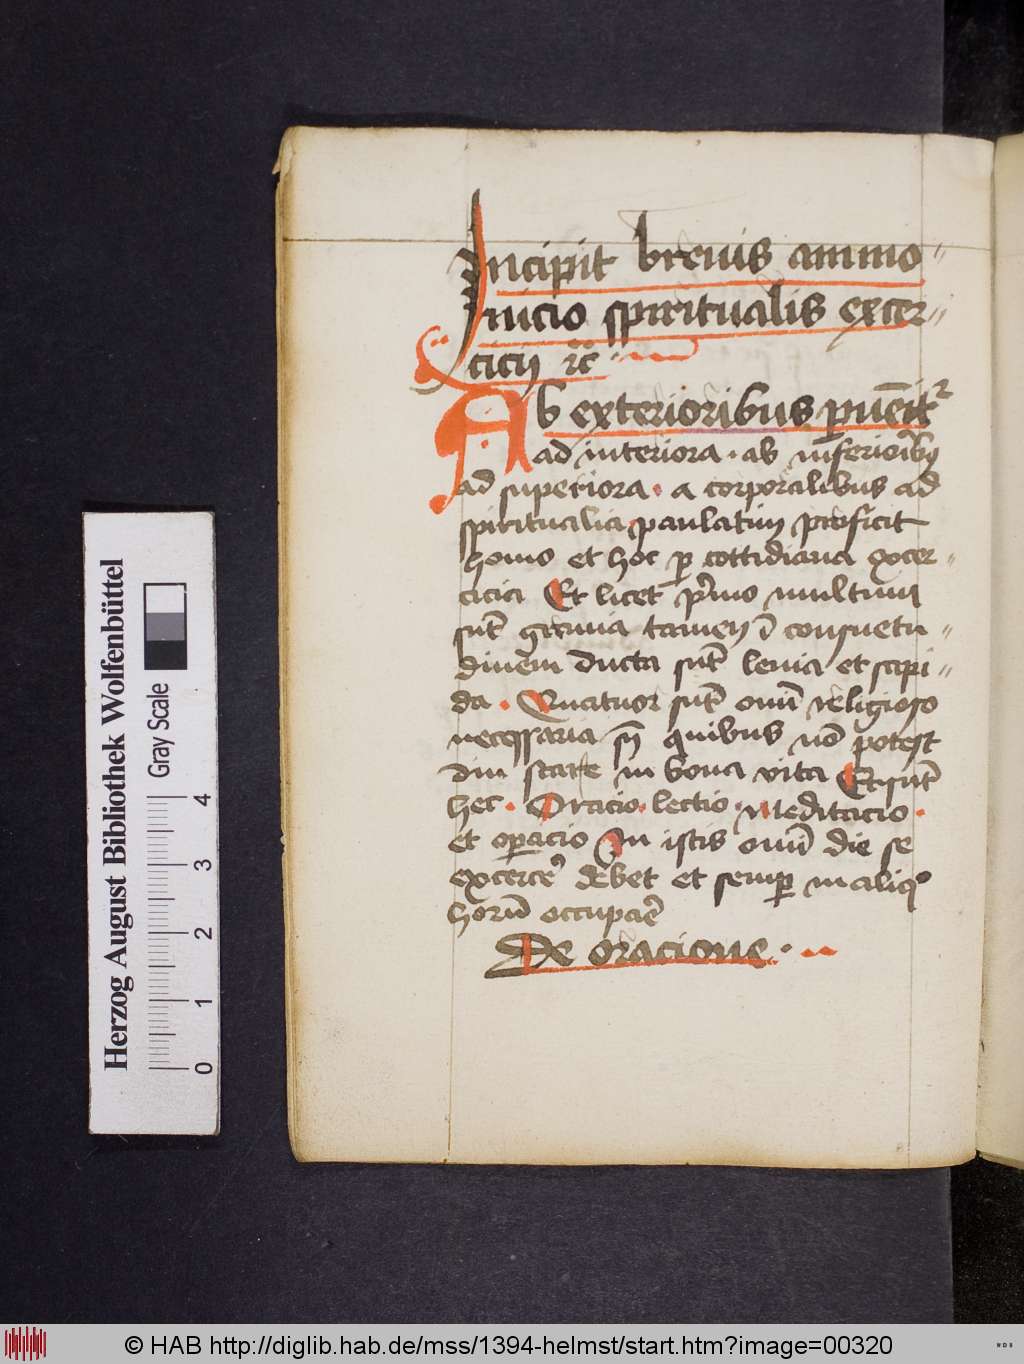 Incipit brevis ammo〃
nicio spiritualis excer〃
cicij ⁊c̄
Ab exterioribus ꝑueīt᷑
ad interiora · ab inferiorib᷒
ad superiora · a corporalibus ad
spiritualia paulatim proficit
homo et hoc ꝑ cottidiana excer〃
cicia Et licet p̄mo multum
sūt gravia tamen ī consuetu〃
dinem ducta sūt levia et sapi〃
da · Quatuor sūt omī religioso
necessaria sn̄ quibus nō potest
diu stare in bona vita Et sūt
hec · Oracio · lectio · Meditacio ·
et oꝑacio In istis omī die se
excerce᷑ debet et semꝑ in aliqo
horū occupa᷑e
De oracione ·
Herzog August Bibliothek Wolfenbüttel
Gray Scale
0 1 2 3 4
© HAB http://diglib.hab.de/mss/1394-helmst/start.htm?image=00320